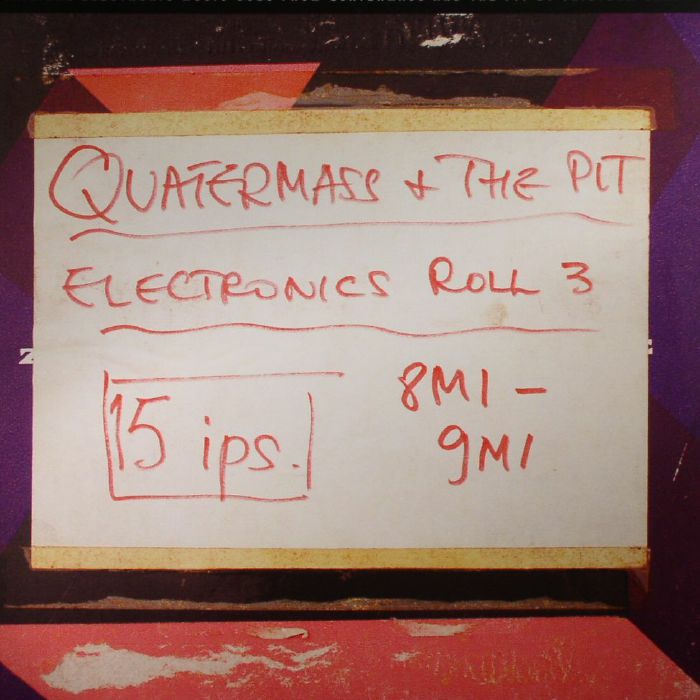 QUATERMASS & THE PIT
ELECTRONICS ROLL 3
15 ips.
8M1 -
9M1